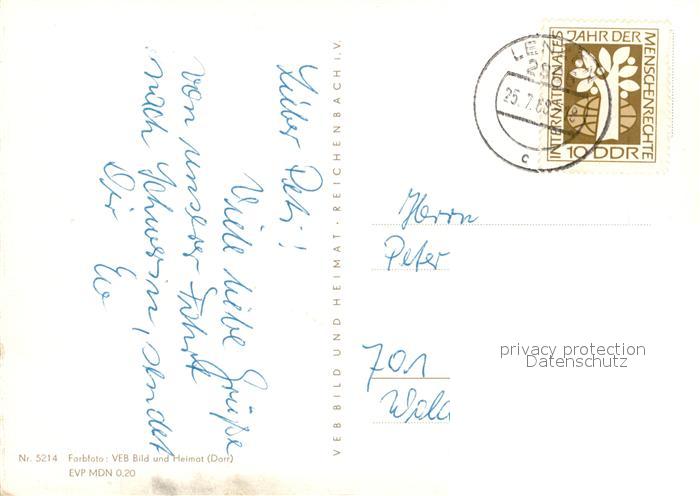 Lieber Peti!
Viele liebe Grüße
von unserer Fahrt
nach Schwerin, sendet
Dir Eva
Nr. 5214 Farbfoto: VEB Bild und Heimat (Darr)
EVP MDN 0,20
VEB BILD UND HEIMAT · REICHENBACH I.V.
INTERNATIONALES JAHR DER MENSCHENRECHTE
10 DDR
25.7.68
c
Herrn
Peter
701
privacy protection
Datenschutz